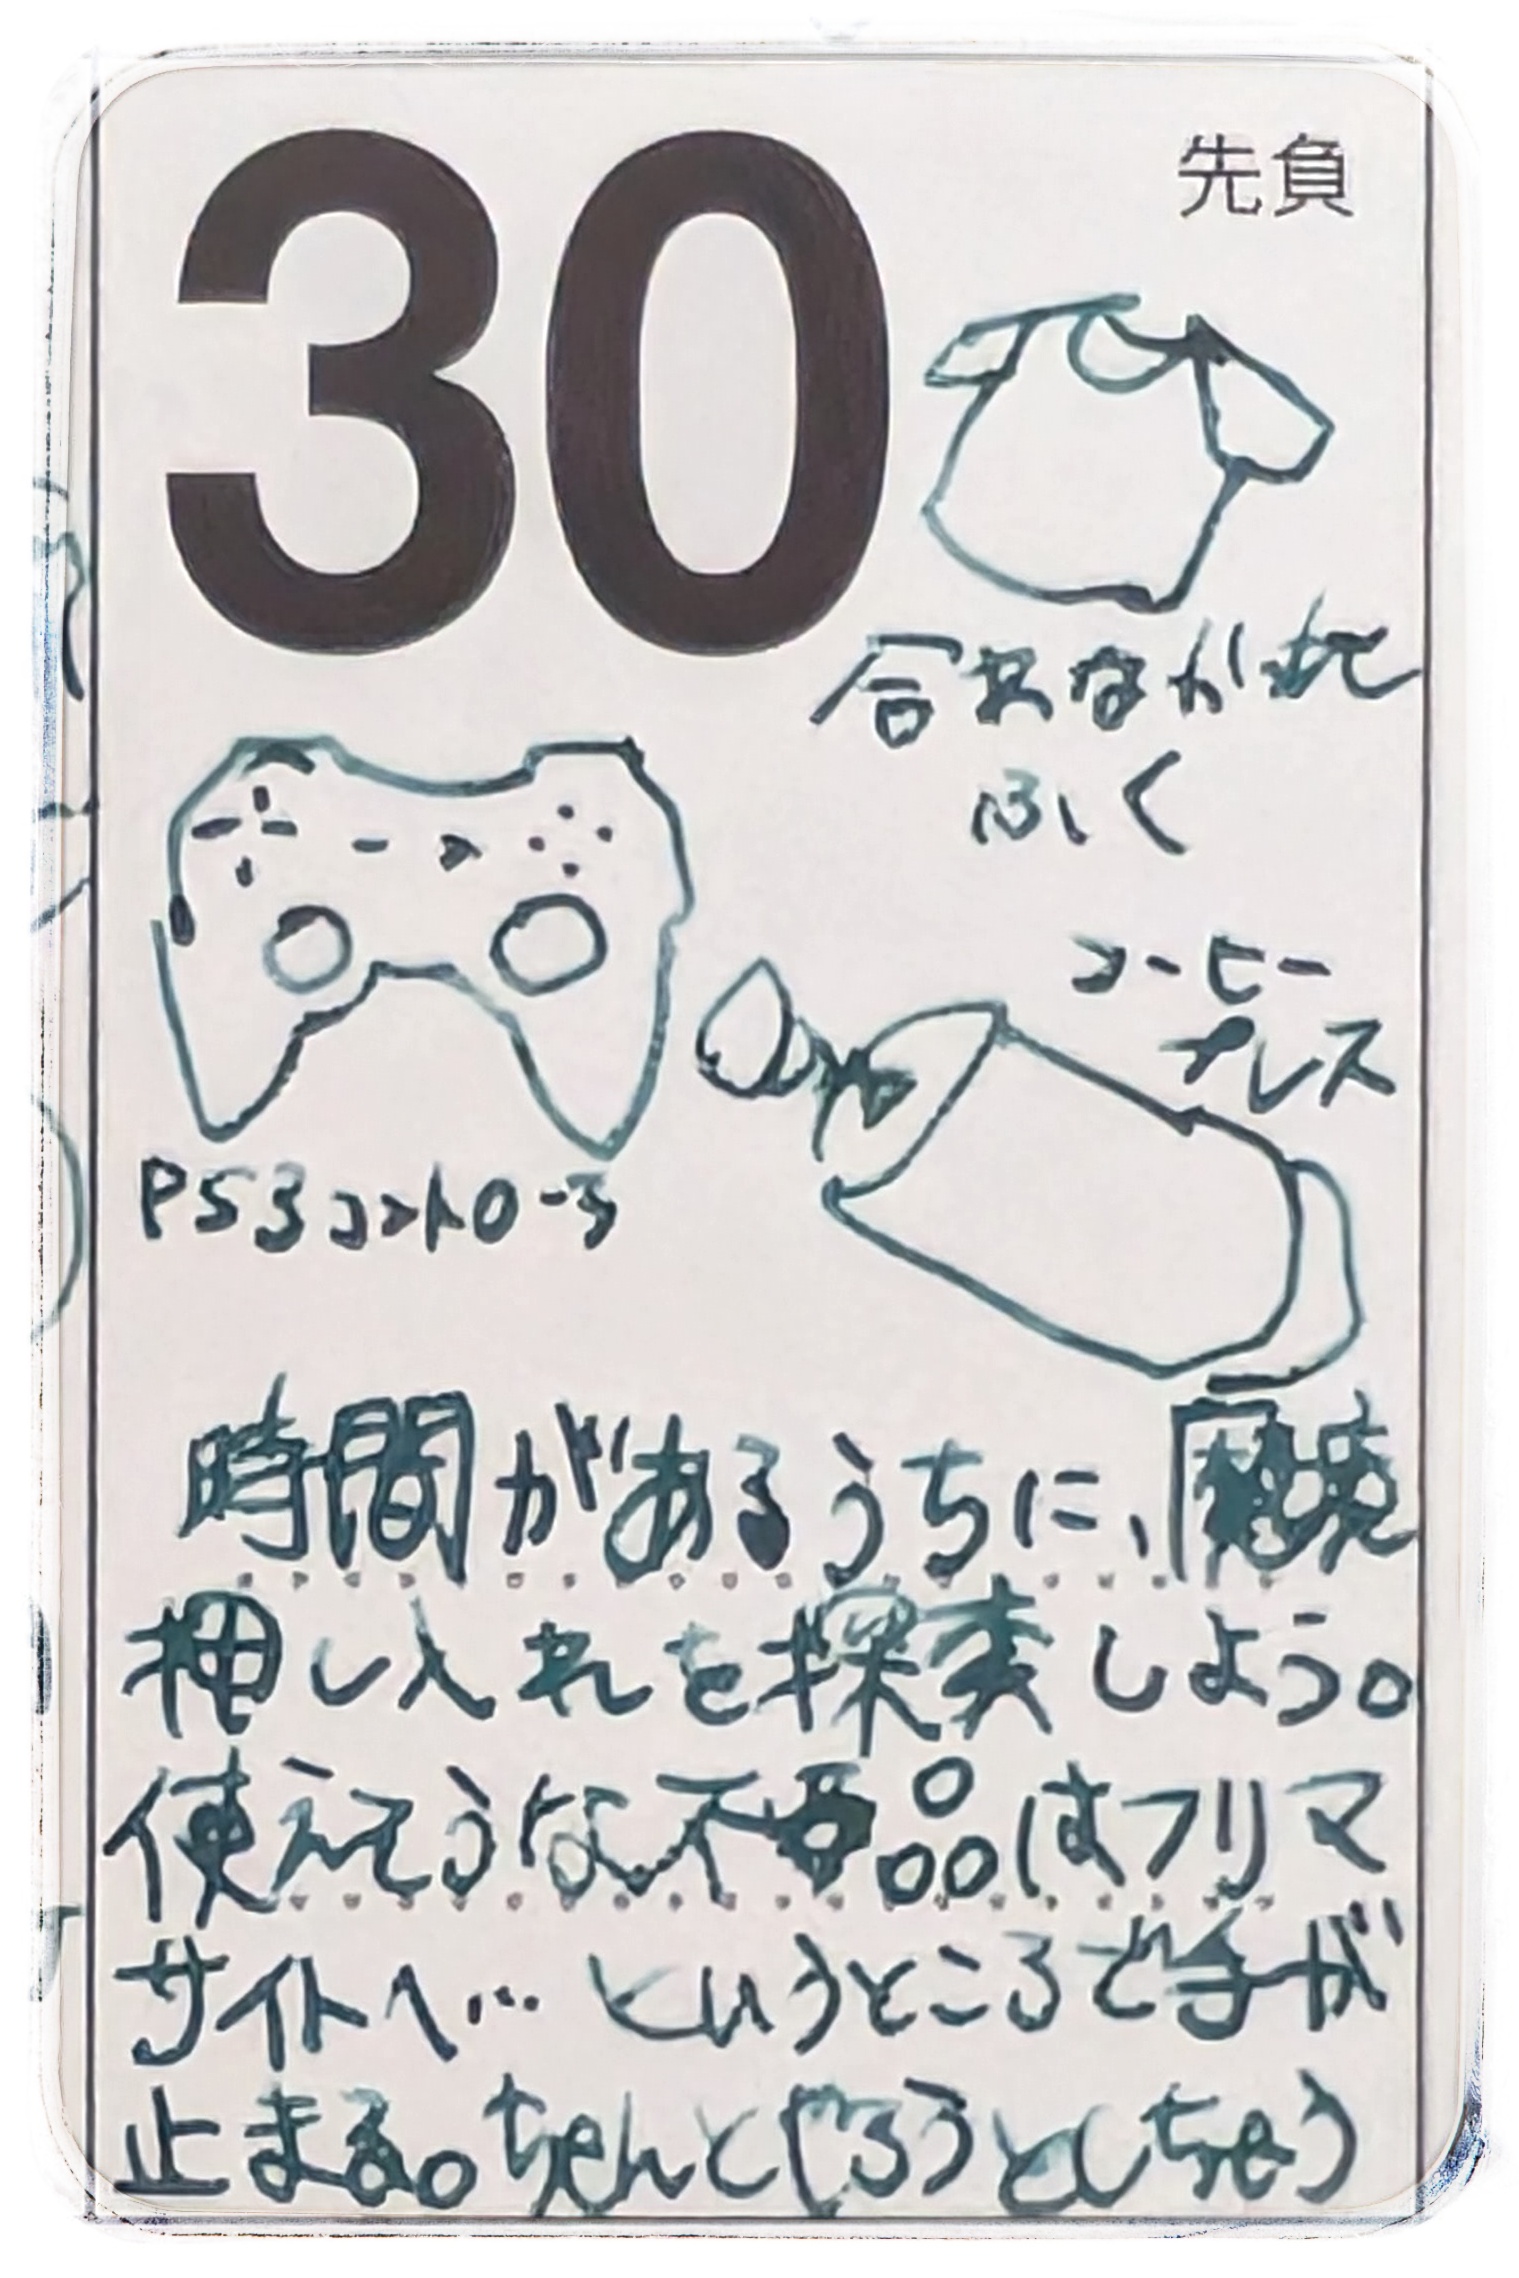 30
先負
合わなかった
ふく
コーヒー
プレス
PS3コントローラ
時間があるうちに、魔境
押し入れを探索しよう。
使えそうな不要品はフリマ
サイトへ… というところで手が
止まる。ちゃんとやろうとしちゃう